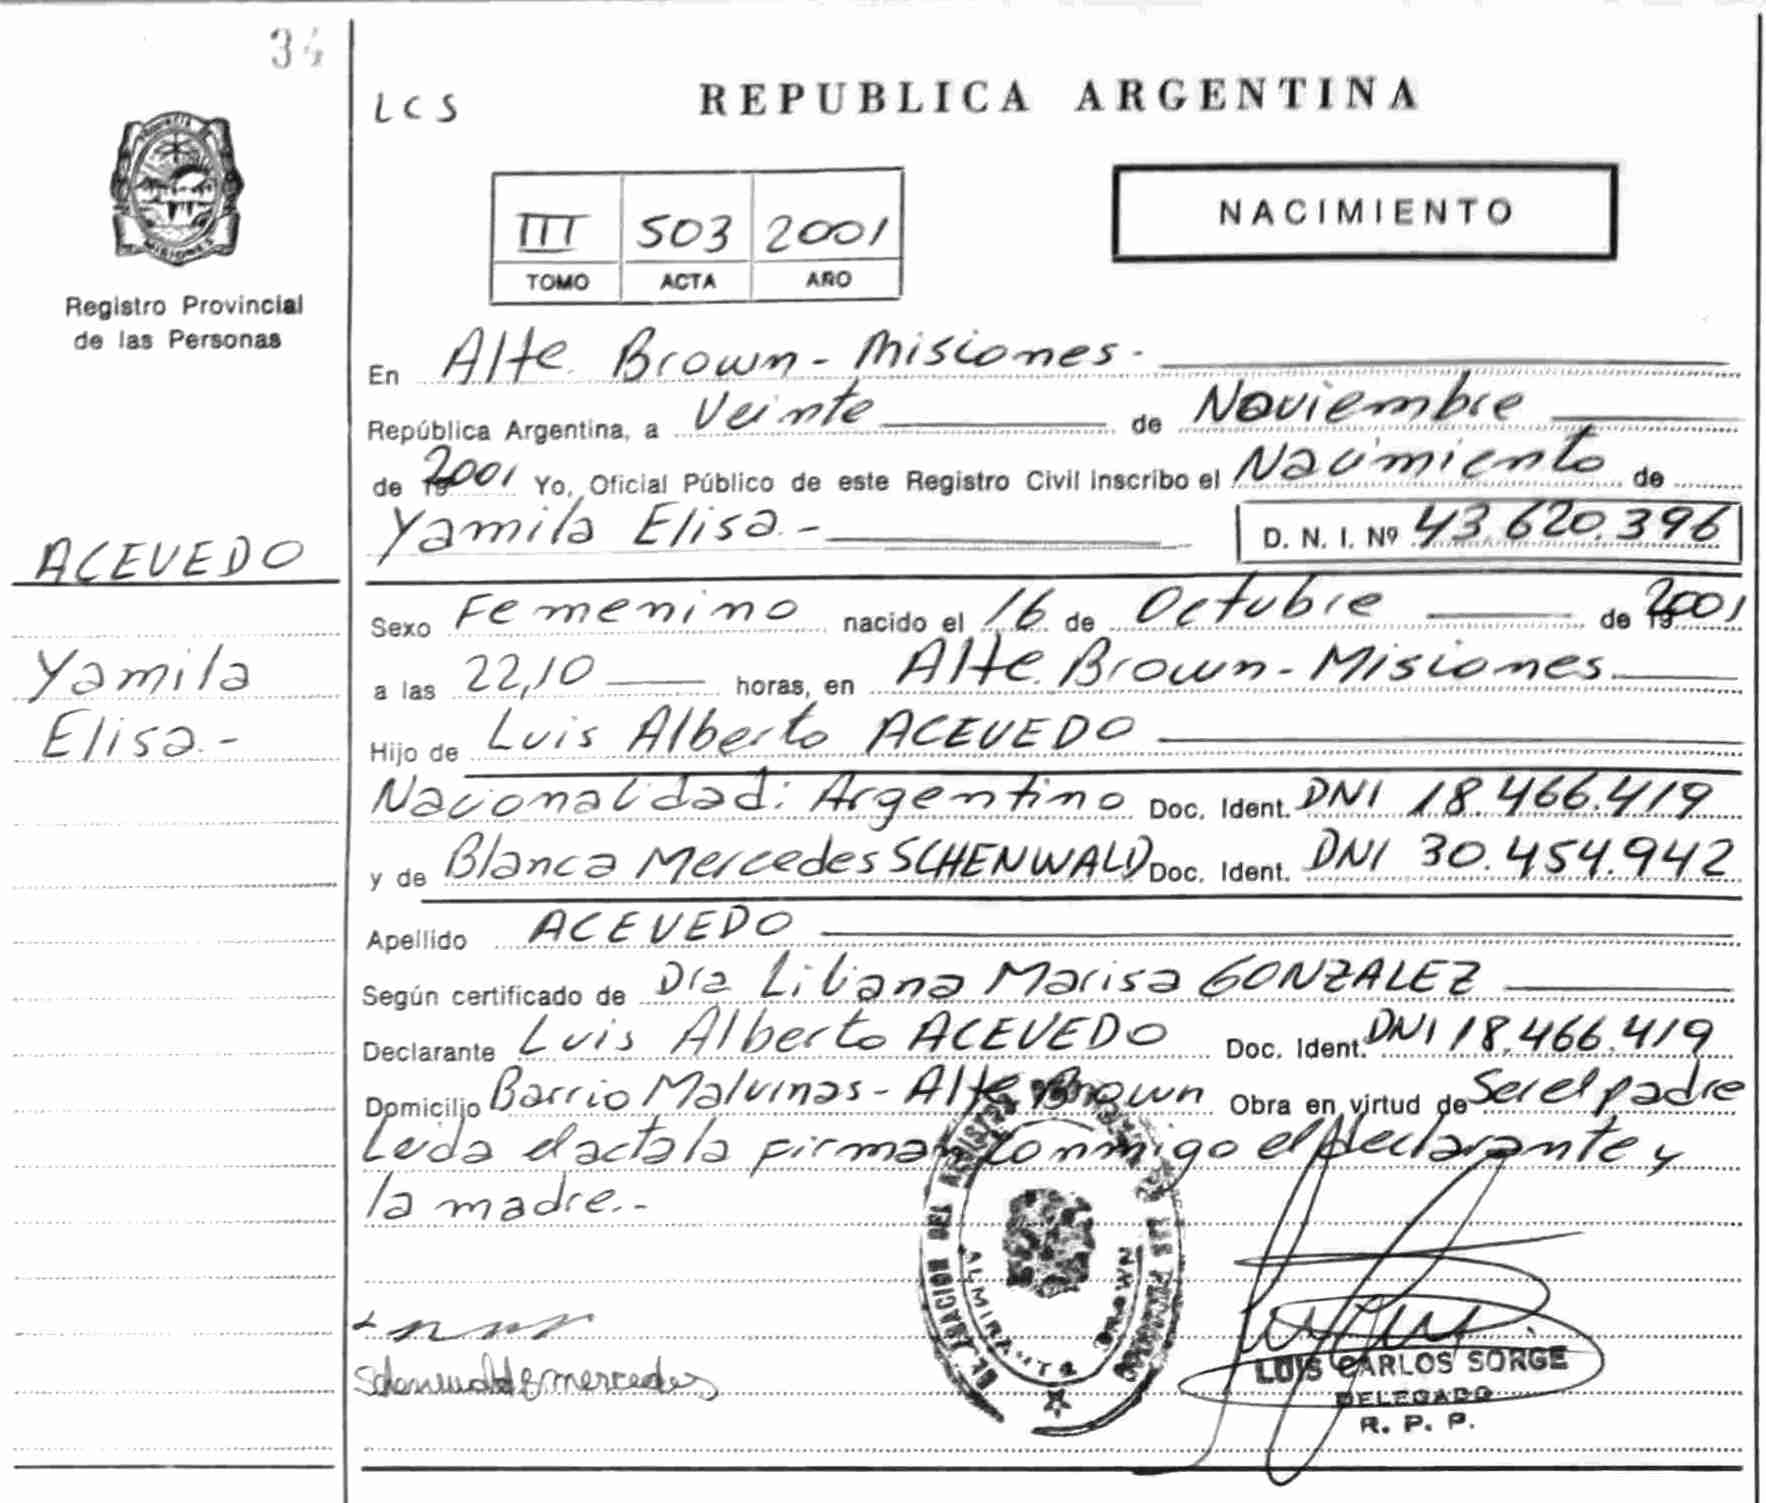 34
LCS
REPUBLICA ARGENTINA
PROVINCIA DE
MISIONES
Registro Provincial
de las Personas
III 503 2001
TOMO ACTA AÑO
NACIMIENTO
En Alte. Brown - Misiones.-
República Argentina, a Veinte de Noviembre
de 2001 Yo, Oficial Público de este Registro Civil inscribo el Nacimiento de
Yamila Elisa.- D. N. I. Nº 43.620.396
ACEVEDO
Sexo Femenino nacido el 16 de Octubre de 2001
Yamila
a las 22,10 horas, en Alte. Brown - Misiones.
Elisa.-
Hijo de Luis Alberto ACEVEDO
Nacionalidad: Argentino Doc. Ident. DNI 18.466.419
y de Blanca Mercedes SCHENWALD Doc. Ident. DNI 30.454.942
Apellido ACEVEDO
Según certificado de Dra Liliana Marisa GONZALEZ
Declarante Luis Alberto ACEVEDO Doc. Ident. DNI 18.466.419
Domicilio Barrio Malvinas - Alte Brown Obra en virtud de Ser el padre
Leida el acta la firman conmigo el declarante y
la madre.-
DELEGACION DEL REGISTRO DE LAS PERSONAS
ALMIRANTE BROWN
mercedes
LUIS CARLOS SORGE
DELEGADO
R. P. P.